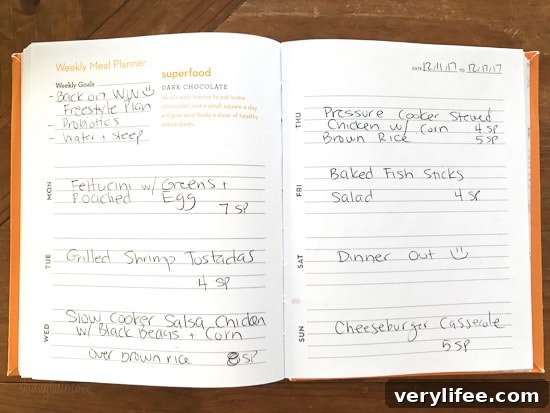 Weekly Meal Planner
Weekly Goals
- Back on WW
Freestyle Plan
- Probiotics
- Water + Sleep
superfood
DARK CHOCOLATE
MON
Fettucini w/ Greens +
Poached Egg
7 SP
TUE
Grilled Shrimp Tostadas
4 SP
WED
Slow Cooker Salsa Chicken
w/ Black Beans + Corn
over brown rice 8 SP
DATE 12/11/17 TO 12/17/17
THU
Pressure Cooker Stewed
Chicken w/ Corn 4 SP
Brown Rice 5 SP
FRI
Baked Fish Sticks
Salad 4 SP
SAT
Dinner Out
SUN
Cheeseburger Casserole
5 SP
verylifee.com